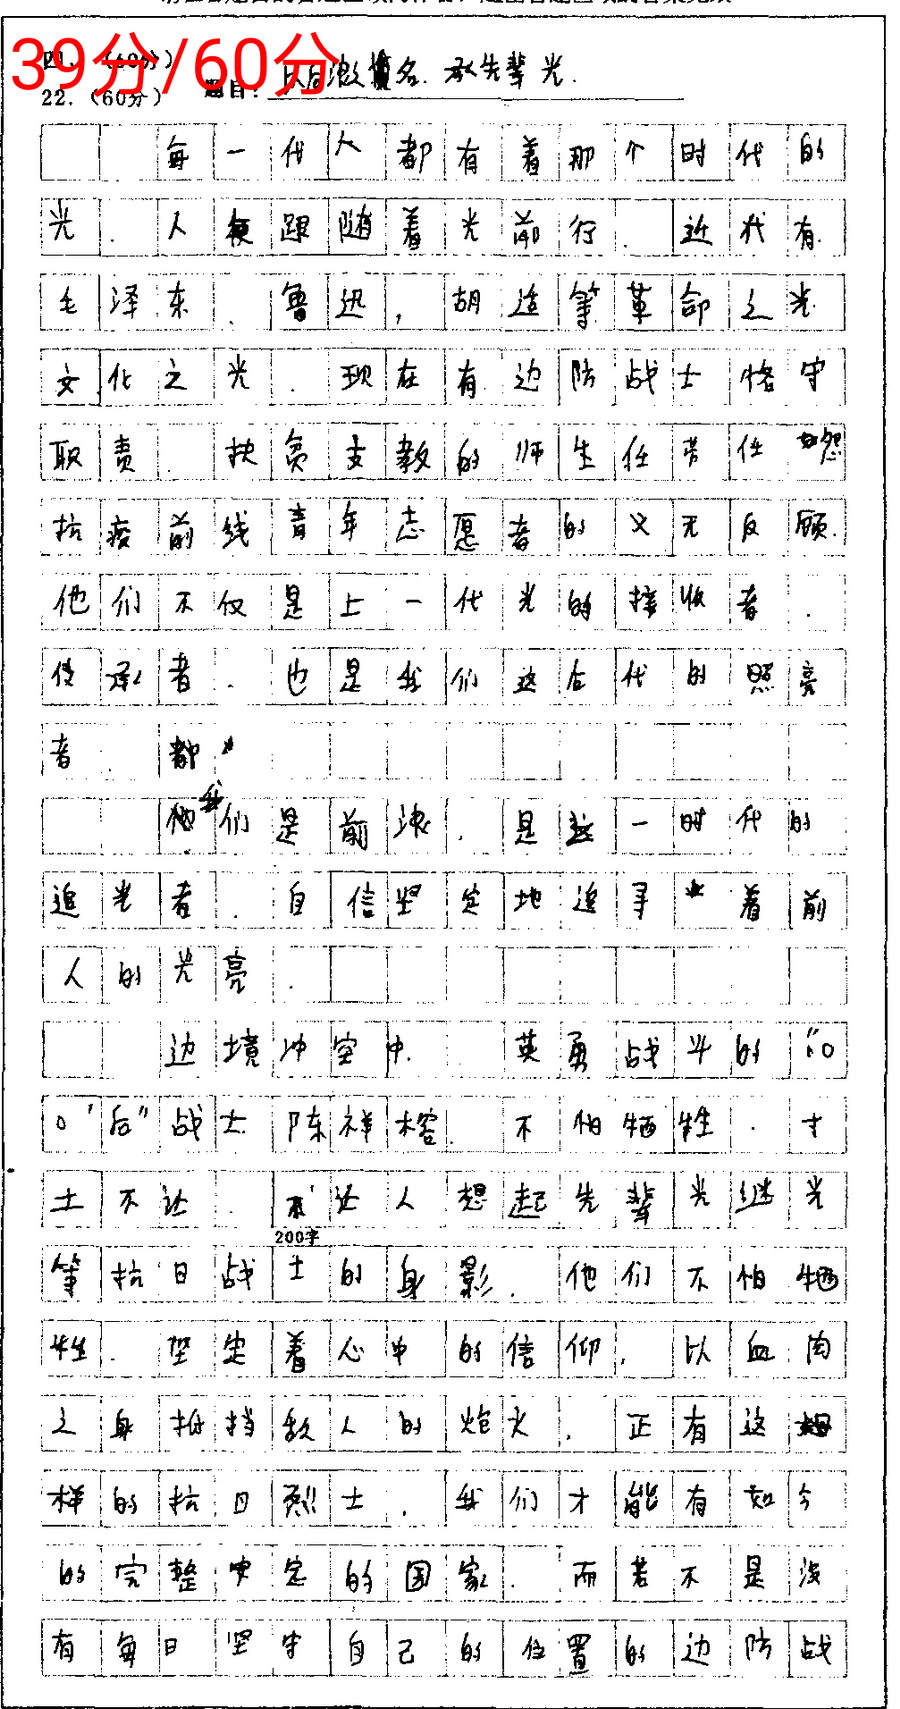 39分/60分
四、(60分)
22.(60分) 题目: 以后浪名.承先辈光.
每一代人都有着那个时代的
光.人便跟随着光前行.近代有
毛泽东.鲁迅,胡适等革命之光
文化之光.现在有边防战士恪守
职责.扶贫支教的师生任劳任怨
抗疫前线青年志愿者的义无反顾.
他们不仅是上一代光的接收者.
传承者.也是我们这后代的照亮
者.都
我们是前浪.是这一时代的
追光者.自信坚定地追寻着前
人的光亮.
边境冲突中.英勇战斗的“00
0'后”战士陈祥榕.不怕牺牲.寸
土不让.不让人想起先辈光继光
等抗日战士的身影.他们不怕牺
200字
牲.坚定着心中的信仰.以血肉
之身抵挡敌人的炮火.正有这
样的抗日烈士.我们才能有如今
的完整安定的国家.而若不是没
有每日坚守自己的位置的边防战